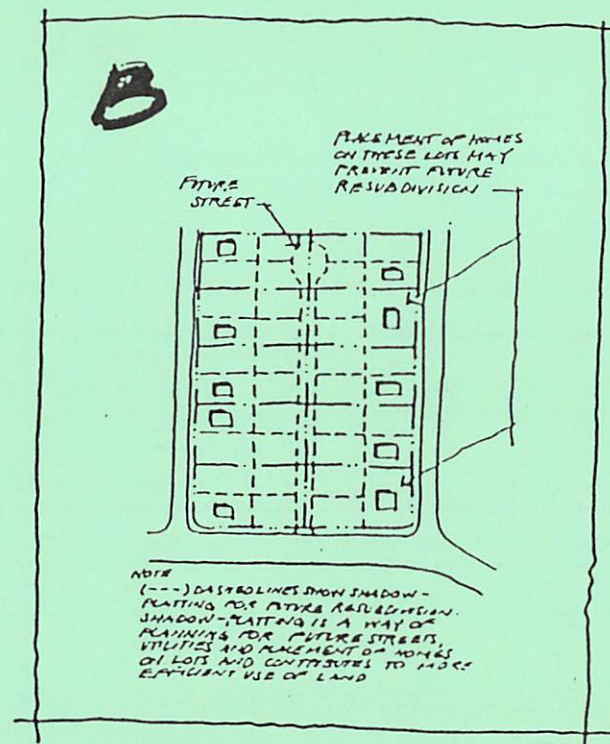 B
PLACEMENT OF HOMES
ON THESE LOTS MAY
PREVENT FUTURE
RESUBDIVISION
FUTURE
STREET
NOTE
(---) DASHED LINES SHOW SHADOW-
PLATTING FOR FUTURE RESUBDIVISION.
SHADOW-PLATTING IS A WAY OF
PLANNING FOR FUTURE STREETS,
UTILITIES AND PLACEMENT OF HOMES
ON LOTS AND CONTRIBUTES TO MORE
EFFICIENT USE OF LAND